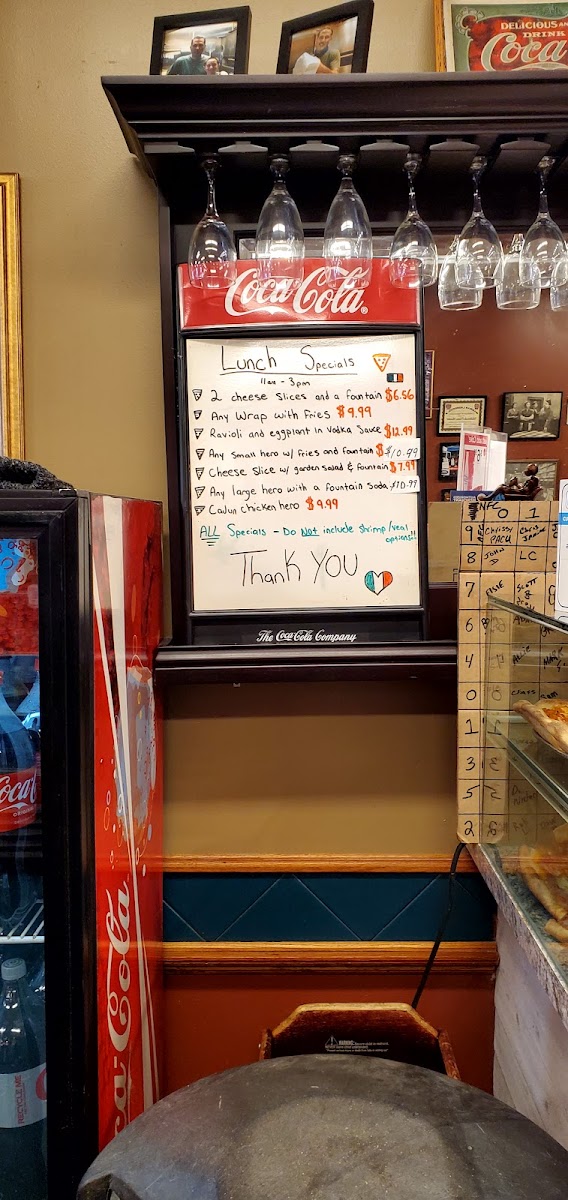 DELICIOUS AND
DRINK
Coca
Coca-Cola
Lunch Specials
11am - 3pm
2 cheese slices and a fountain $6.56
Any Wrap with fries $9.99
Ravioli and eggplant in Vodka Sauce $12.99
Any small hero w/ fries and fountain $10.99
Cheese slice w/ garden salad & fountain $7.99
Any large hero with a fountain soda $10.99
Cajun chicken hero $9.99
ALL Specials - Do Not include shrimp/veal options!!
Thank You
The Coca-Cola Company
NFC 0 1
9 Chrissy
8 John D LC
7 Scott &
6
4
0 Chris
1
3
5
2
Coca
Coca-Cola
RECYCLE ME
WARNING: